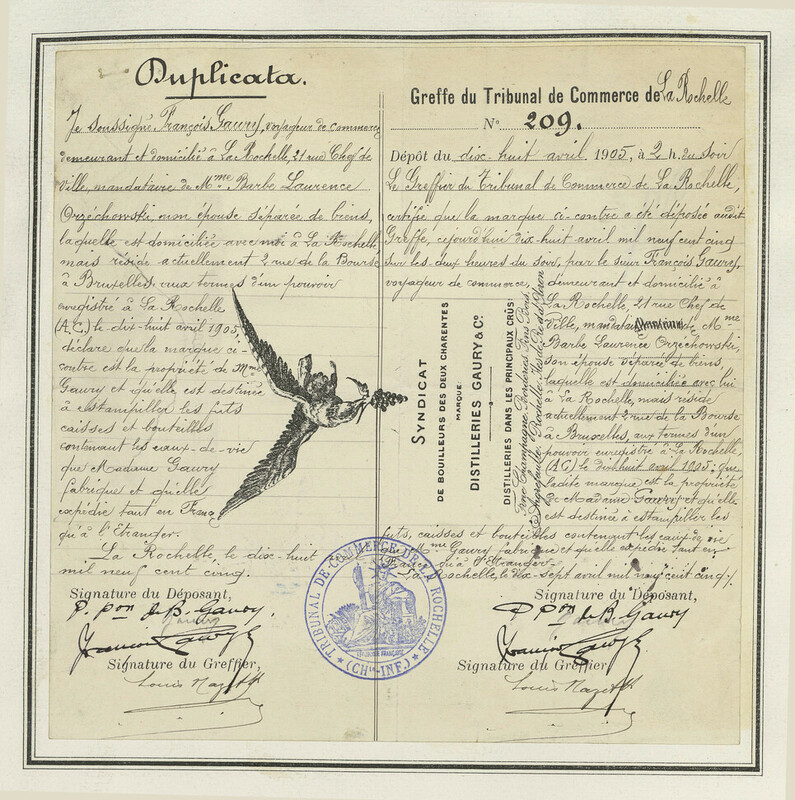 Duplicata.
Je soussigné François Gaury, voyageur de commerce
demeurant et domicilié à La Rochelle, 21 rue Chef de
Ville, mandataire de Mme Barbe Laurence
Orzéchowski, mon épouse séparée de biens,
laquelle est domiciliée avec moi à La Rochelle
mais réside actuellement 2 rue de la Bourse
à Bruxelles, aux termes d'un pouvoir
enregistré à La Rochelle
(A.C.) le dix-huit avril 1905,
déclare que la marque ci-
contre est la propriété de Mme
Gaury et qu'elle est destinée
à estampiller les fûts
caisses et bouteilles
contenant les eaux-de-vie
que Madame Gaury
fabrique et qu'elle
expédie tant en France
qu'à l'Etranger.
La Rochelle, le dix-huit
mil neuf cent cinq.
Signature du Déposant,
P. pon de B. Gaury
Gaury
François Gaury
Signature du Greffier,
Louis
Greffe du Tribunal de Commerce de La Rochelle
No 209.
Dépôt du dix-huit avril 1905, à 2 h. du soir
Le Greffier du Tribunal de Commerce de La Rochelle,
certifie que la marque ci-contre a été déposée audit
Greffe, cejourd'hui dix-huit avril mil neuf cent cinq
sur les deux heures du soir, par le sieur François Gaury,
voyageur de commerce, demeurant et domicilié à
La Rochelle, 21 rue Chef de
Ville, mandataire de Mme
Barbe Laurence Orzechowski,
son épouse séparée de biens,
laquelle est domiciliée avec lui
à La Rochelle, mais réside
actuellement 2 rue de la Bourse
à Bruxelles, aux termes d'un
pouvoir enregistré à La Rochelle,
(A.C.) le dix huit avril 1905; que
ladite marque est la propriété
de Madame Gaury et qu'elle
est destinée à estampiller les
fûts, caisses et bouteilles contenant les eaux-de-vie
que Mme Gaury fabrique et qu'elle expédie tant en
France qu'à l'Etranger.
La Rochelle, le dix-sept avril mil neuf cent cinq
Signature du Déposant,
P. Pon de B. Gaury
François Gaury
Signature du Greffier,
Louis
SYNDICAT
DE BOUILLEURS DES DEUX CHARENTES
MARQUE
DISTILLERIES GAURY & Co.
DISTILLERIES DANS LES PRINCIPAUX CRÛS:
Fine Champagne, Borderies, Fins Bois,
Aigrefeuille, Rochelle, Iles de Ré et d'Oléron
TRIBUNAL DE COMMERCE DE LA ROCHELLE
(CHte-INFre)
RÉPUBLIQUE FRANÇAISE